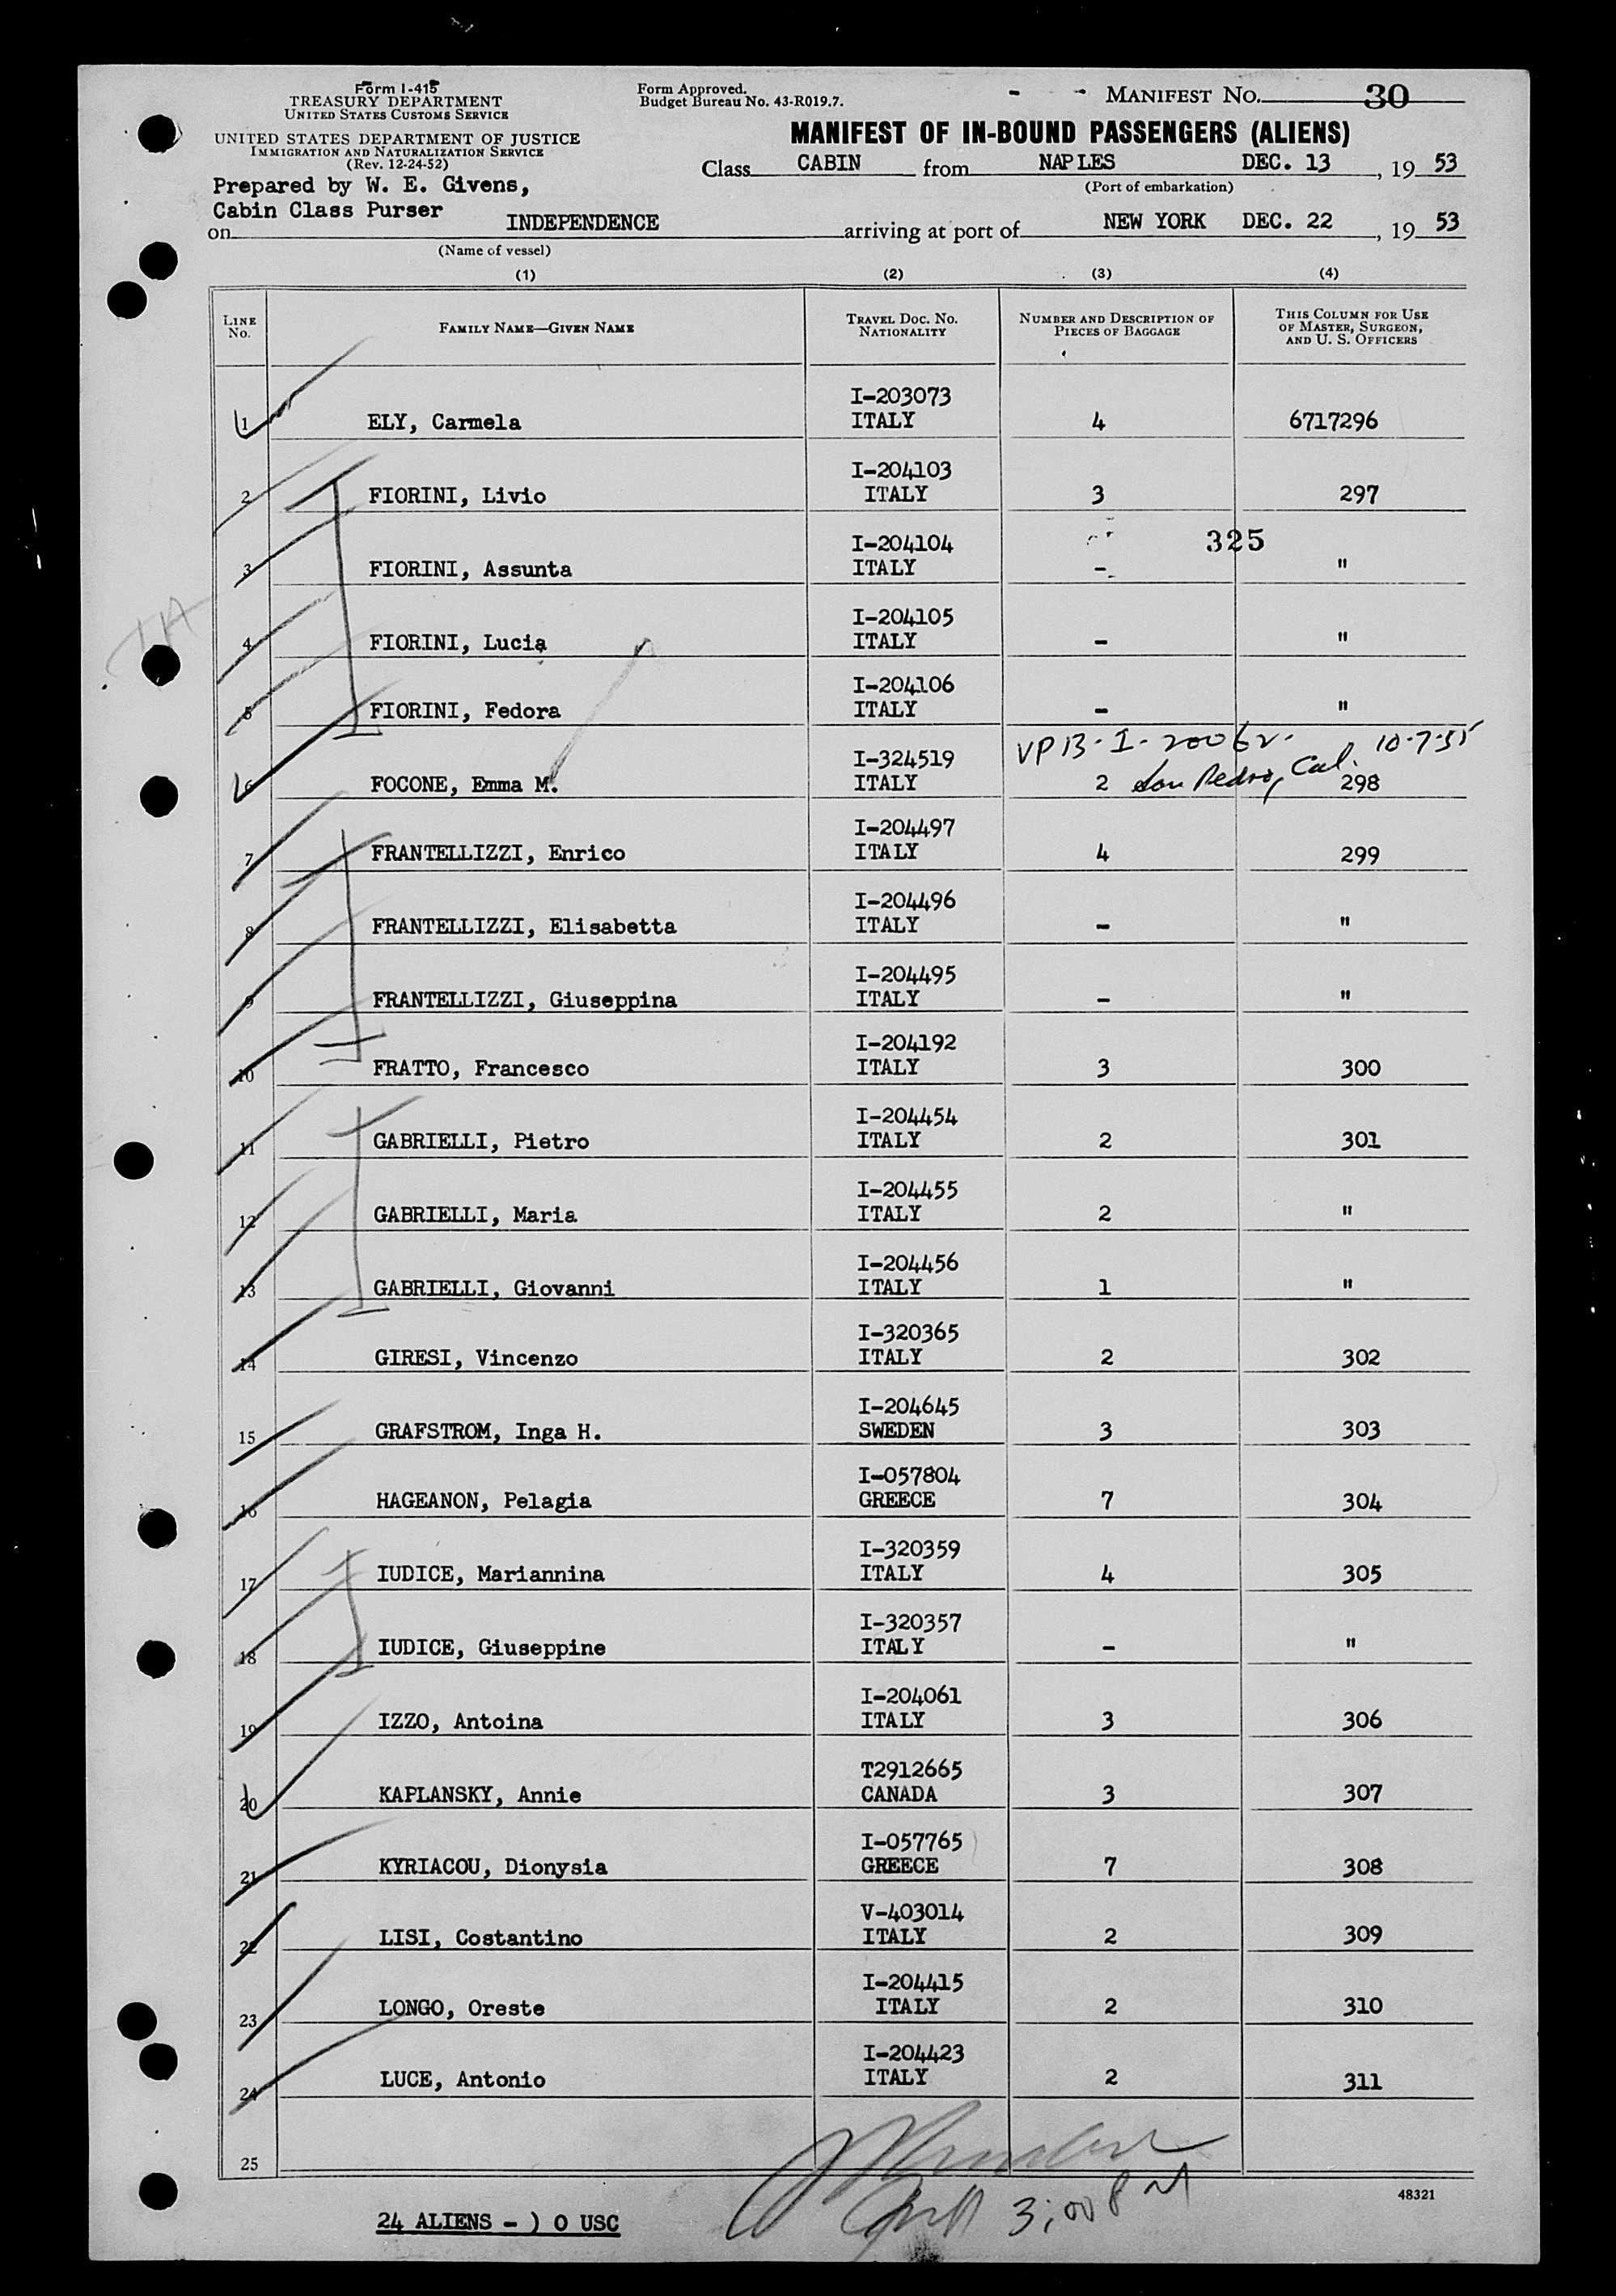 Form I-415
TREASURY DEPARTMENT
UNITED STATES CUSTOMS SERVICE
UNITED STATES DEPARTMENT OF JUSTICE
IMMIGRATION AND NATURALIZATION SERVICE
(Rev. 12-24-52)
Form Approved.
Budget Bureau No. 43-R019.7.
MANIFEST NO. 30
MANIFEST OF IN-BOUND PASSENGERS (ALIENS)
Class CABIN from NAPLES DEC. 13, 1953
(Port of embarkation)
Prepared by W. E. Givens,
Cabin Class Purser
on INDEPENDENCE arriving at port of NEW YORK DEC. 22, 1953
(Name of vessel)
(1) (2) (3) (4)
LINE No. FAMILY NAME—GIVEN NAME TRAVEL DOC. NO. NATIONALITY NUMBER AND DESCRIPTION OF PIECES OF BAGGAGE THIS COLUMN FOR USE OF MASTER, SURGEON, AND U. S. OFFICERS
I-203073
1 ELY, Carmela ITALY 4 6717296
I-204103
2 FIORINI, Livio ITALY 3 297
I-204104 325
3 FIORINI, Assunta ITALY - "
I-204105
4 FIORINI, Lucia ITALY - "
I-204106
5 FIORINI, Fedora ITALY - "
I-324519 VPB-I-20062- 10-7-55
6 FOCONE, Emma M. ITALY 2 San Pedro, Cal. 298
I-204497
7 FRANTELLIZZI, Enrico ITALY 4 299
I-204496
8 FRANTELLIZZI, Elisabetta ITALY - "
I-204495
9 FRANTELLIZZI, Giuseppina ITALY - "
I-204192
10 FRATTO, Francesco ITALY 3 300
I-204454
11 GABRIELLI, Pietro ITALY 2 301
I-204455
12 GABRIELLI, Maria ITALY 2 "
I-204456
13 GABRIELLI, Giovanni ITALY 1 "
I-320365
14 GIRESI, Vincenzo ITALY 2 302
I-204645
15 GRAFSTROM, Inga H. SWEDEN 3 303
I-057804
16 HAGEANON, Pelagia GREECE 7 304
I-320359
17 IUDICE, Mariannina ITALY 4 305
I-320357
18 IUDICE, Giuseppine ITALY - "
I-204061
19 IZZO, Antoina ITALY 3 306
T2912665
20 KAPLANSKY, Annie CANADA 3 307
I-057765
21 KYRIACOU, Dionysia GREECE 7 308
V-403014
22 LISI, Costantino ITALY 2 309
I-204415
23 LONGO, Oreste ITALY 2 310
I-204423
24 LUCE, Antonio ITALY 2 311
25
3:00 PM
48321
24 ALIENS - ) 0 USC